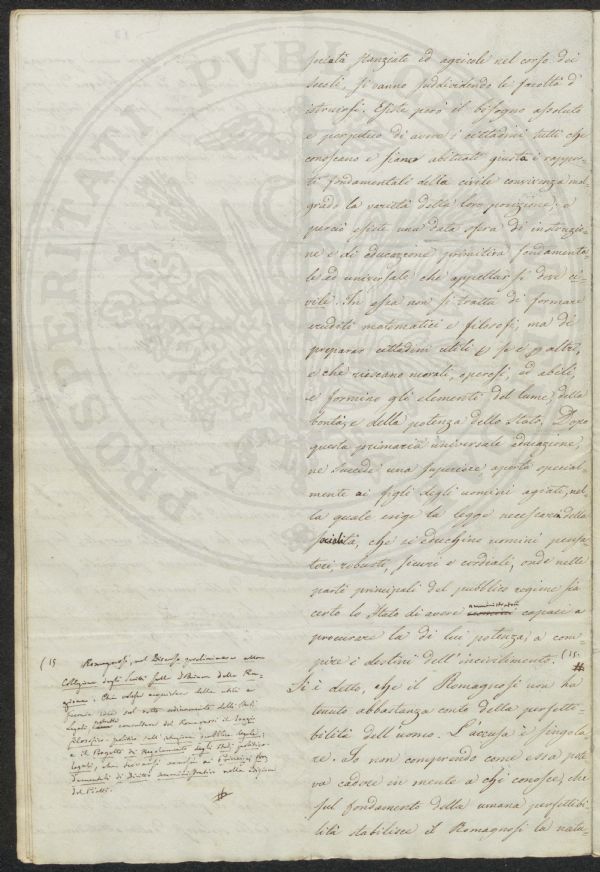 società stanziate ed agricole nel corso dei
secoli, si vanno suddividendo le facoltà d'
istruirsi. Esiste però il bisogno assoluto
e perpetuo di avere i cittadini tutti che
conoscano e siano abituati giusta i rappor-
ti fondamentali della civile convivenza mal-
grado la varietà della loro posizione; e
perciò esiste una data sfera di instruzio-
ne e di educazione primitiva fondamenta-
le ed universale che appellar si deve ci-
vile. In essa non si tratta di formare
eruditi matematici e filosofi, ma di
preparar cittadini utili a se e altri,
e che riescano morali, operosi, ed abili,
e formino gli elementi del lume, della
bontà, e della potenza dello Stato. Dopo
questa primaria universale educazione,
ne succede una superiore aperta special-
mente ai figli degli uomini agiati, nel-
la quale esige la legge necessaria della
socialità, che si educhino uomini pensa-
tori, robusti, sicuri e cordiali, onde nelle
parti principali del pubblico regime sia
certo lo Stato di avere amministratori capaci a
procurare la di lui potenza; a com-
pire i destini dell'incivilimento. (15.
#
Si è detto, che il Romagnosi non ha
tenuto abbastanza conto della perfetti-
bilità dell'uomo. L'accusa è singola-
re. Io non comprendo come essa pote-
va cadere in mente a chi conosce, che
sul fondamento della umana perfettibi-
lità stabilisce il Romagnosi la natu-
(15 Romagnosi, nel Discorso preliminare alla
Collezione degli Scritti sulla dottrina della Ra-
gione. Chi volesse acquistare delle utili e
feconde idee sul retto ordinamento degli Studi
legali, consultare del Romagnosi il Saggio
filosofico-politico sull'istruzione pubblica legale;
e il Progetto di Regolamento degli Studi politico-
legali, che trovansi annessi ai Principj fon-
damentali di Diritto amministrativo nella Edizione
del Piatti.
#